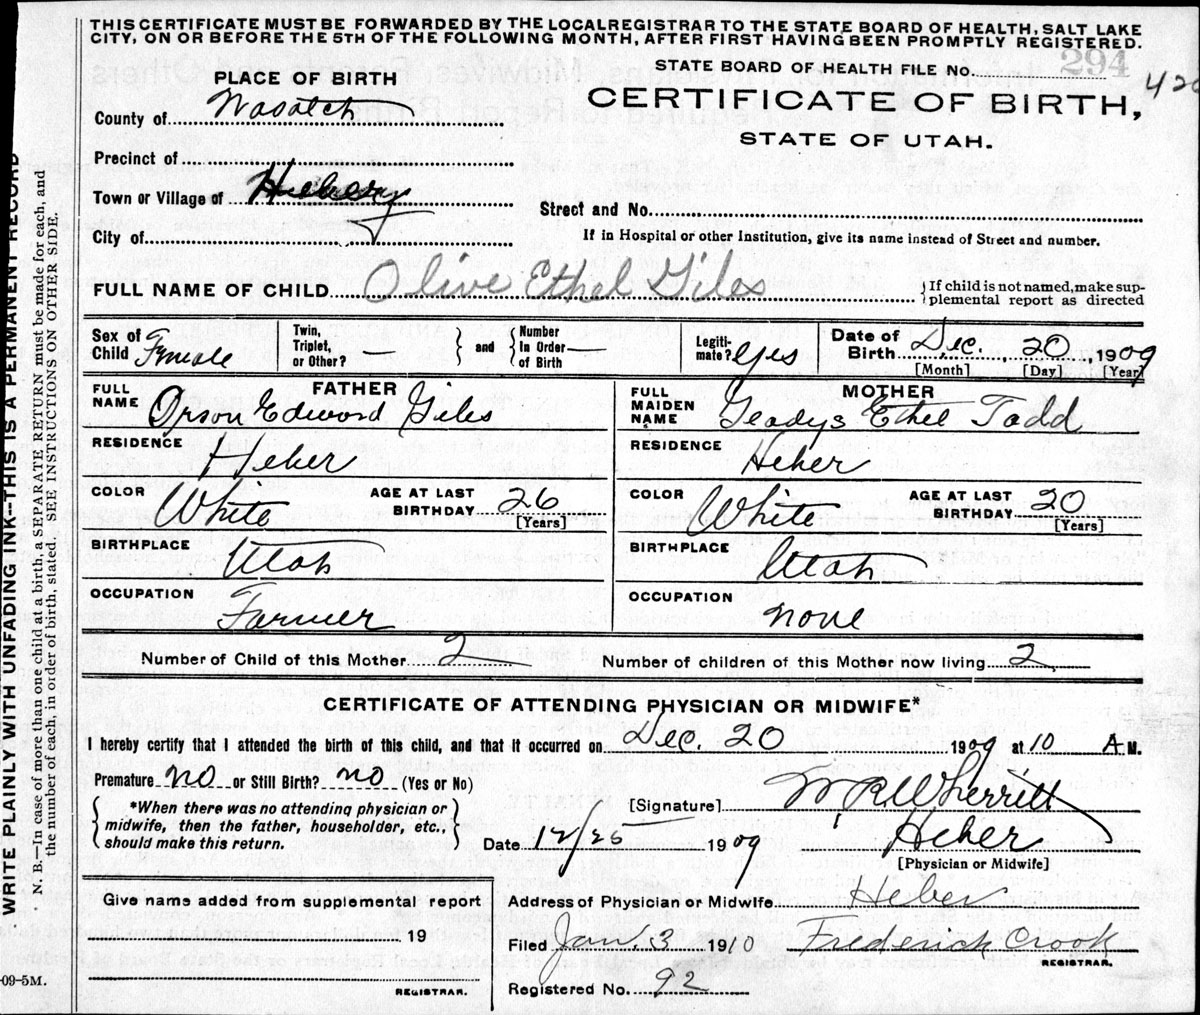 THIS CERTIFICATE MUST BE FORWARDED BY THE LOCAL REGISTRAR TO THE STATE BOARD OF HEALTH, SALT LAKE
CITY, ON OR BEFORE THE 5TH OF THE FOLLOWING MONTH, AFTER FIRST HAVING BEEN PROMPTLY REGISTERED.
STATE BOARD OF HEALTH FILE NO. 294
420
PLACE OF BIRTH
CERTIFICATE OF BIRTH,
STATE OF UTAH.
County of Wasatch
Precinct of
Town or Village of Heber
City of
Street and No.
If in Hospital or other Institution, give its name instead of Street and number.
FULL NAME OF CHILD Olive Ethel Giles
If child is not named, make sup-
plemental report as directed
Sex of Child Female
Twin, Triplet, or Other? —
and
Number In Order of Birth —
Legiti-mate? Yes
Date of Birth Dec. 20, 1909
[Month] [Day] [Year]
FATHER
FULL NAME Orson Edward Giles
RESIDENCE Heber
COLOR White
AGE AT LAST BIRTHDAY 26
[Years]
BIRTHPLACE Utah
OCCUPATION Farmer
MOTHER
FULL MAIDEN NAME Gladys Ethel Todd
RESIDENCE Heber
COLOR White
AGE AT LAST BIRTHDAY 20
[Years]
BIRTHPLACE Utah
OCCUPATION none
Number of Child of this Mother 2
Number of children of this Mother now living 2
CERTIFICATE OF ATTENDING PHYSICIAN OR MIDWIFE*
I hereby certify that I attended the birth of this child, and that it occurred on Dec. 20 1909 at 10 A M.
Premature no or Still Birth? no (Yes or No)
*When there was no attending physician or
midwife, then the father, householder, etc.,
should make this return.
[Signature] Wherritt
Date 12/25 1909
Heber
[Physician or Midwife]
Give name added from supplemental report
19
REGISTRAR.
Address of Physician or Midwife Heber
Filed Jan. 3 1910 Frederick Crook
REGISTRAR.
Registered No. 92
WRITE PLAINLY WITH UNFADING INK--THIS IS A PERMANENT RECORD
N. B.—In case of more than one child at a birth, a SEPARATE RETURN must be made for each, and
the number of each, in order of birth, stated. SEE INSTRUCTIONS ON OTHER SIDE.
-09-5M.